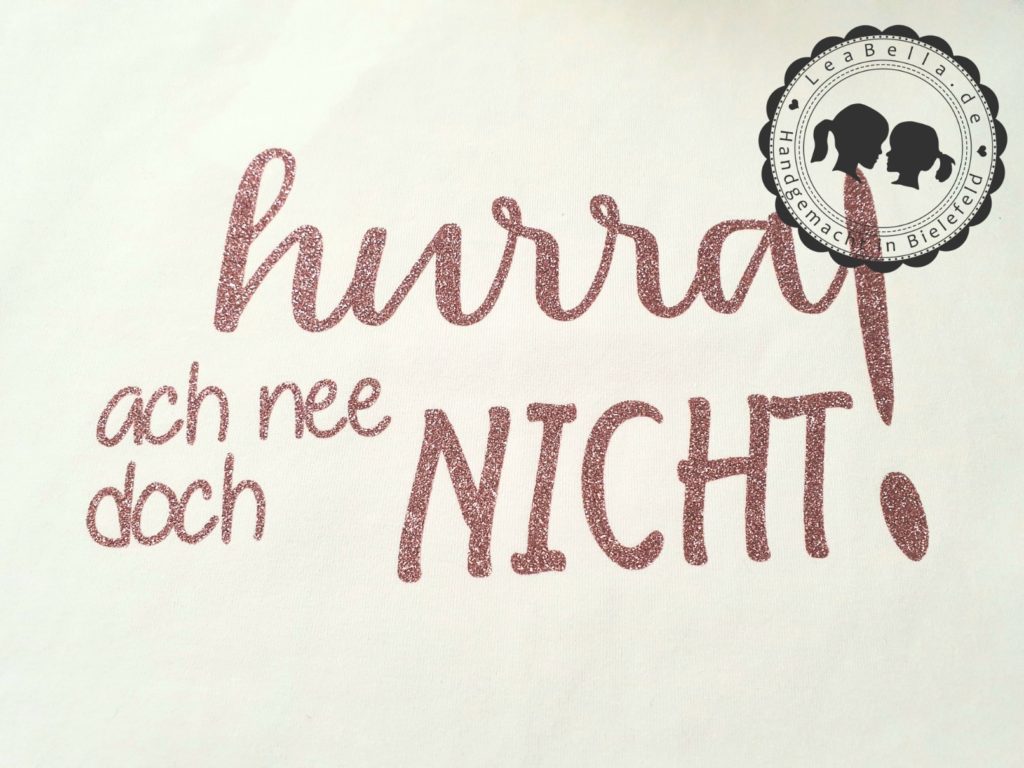 hurra!
ach nee
doch
NICHT
LeaBella.de
Handgemacht in Bielefeld